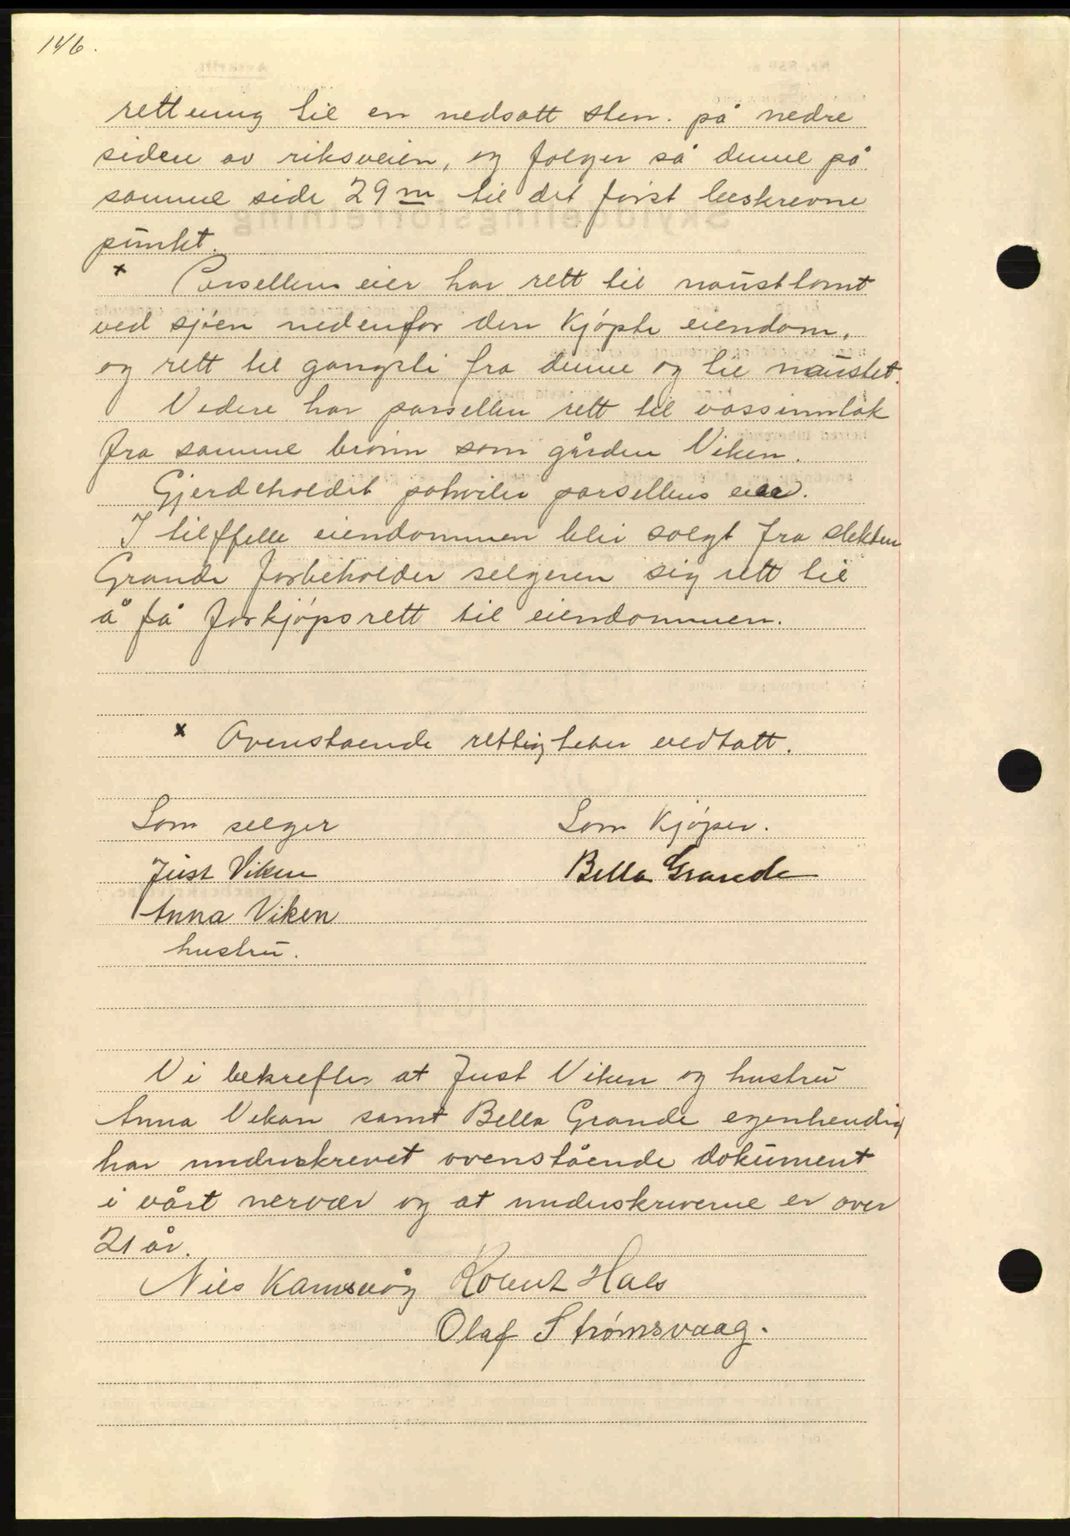 146.
rettning til en nedsatt sten. på nedre
siden av riksveien, og følger så denne på
samme side 29 m til det først beskrevne
punkt.
x Parsellens eier har rett til nausttomt
ved sjøen nedenfor den kjøpte eiendom,
og rett til gangsti fra denne og til naustet.
Videre har parsellen rett til vassinntak
fra samme brønn som gården Viken.
Gjerdeholdet påhviler parsellens eier.
I tilffelle eiendommen blir solgt fra slekten
Grande forbeholder selgeren sig rett til
å få forkjøpsrett til eiendommen.
x Ovenstaende rettigheter vedtatt.
Som selger Som Kjøper.
Just Viken Bella Grande
Anna Viken
hustru.
Vi bekrefter at Just Viken og hustru
Anna Vikan samt Bella Grande egenhendig
har underskrevet ovenstående dokument
i vårt nervær og at underskriverne er over
21 år.
Nils Kamsvåg Robert Hals
Olaf Strømsvaag.
Skylddelingsforretning